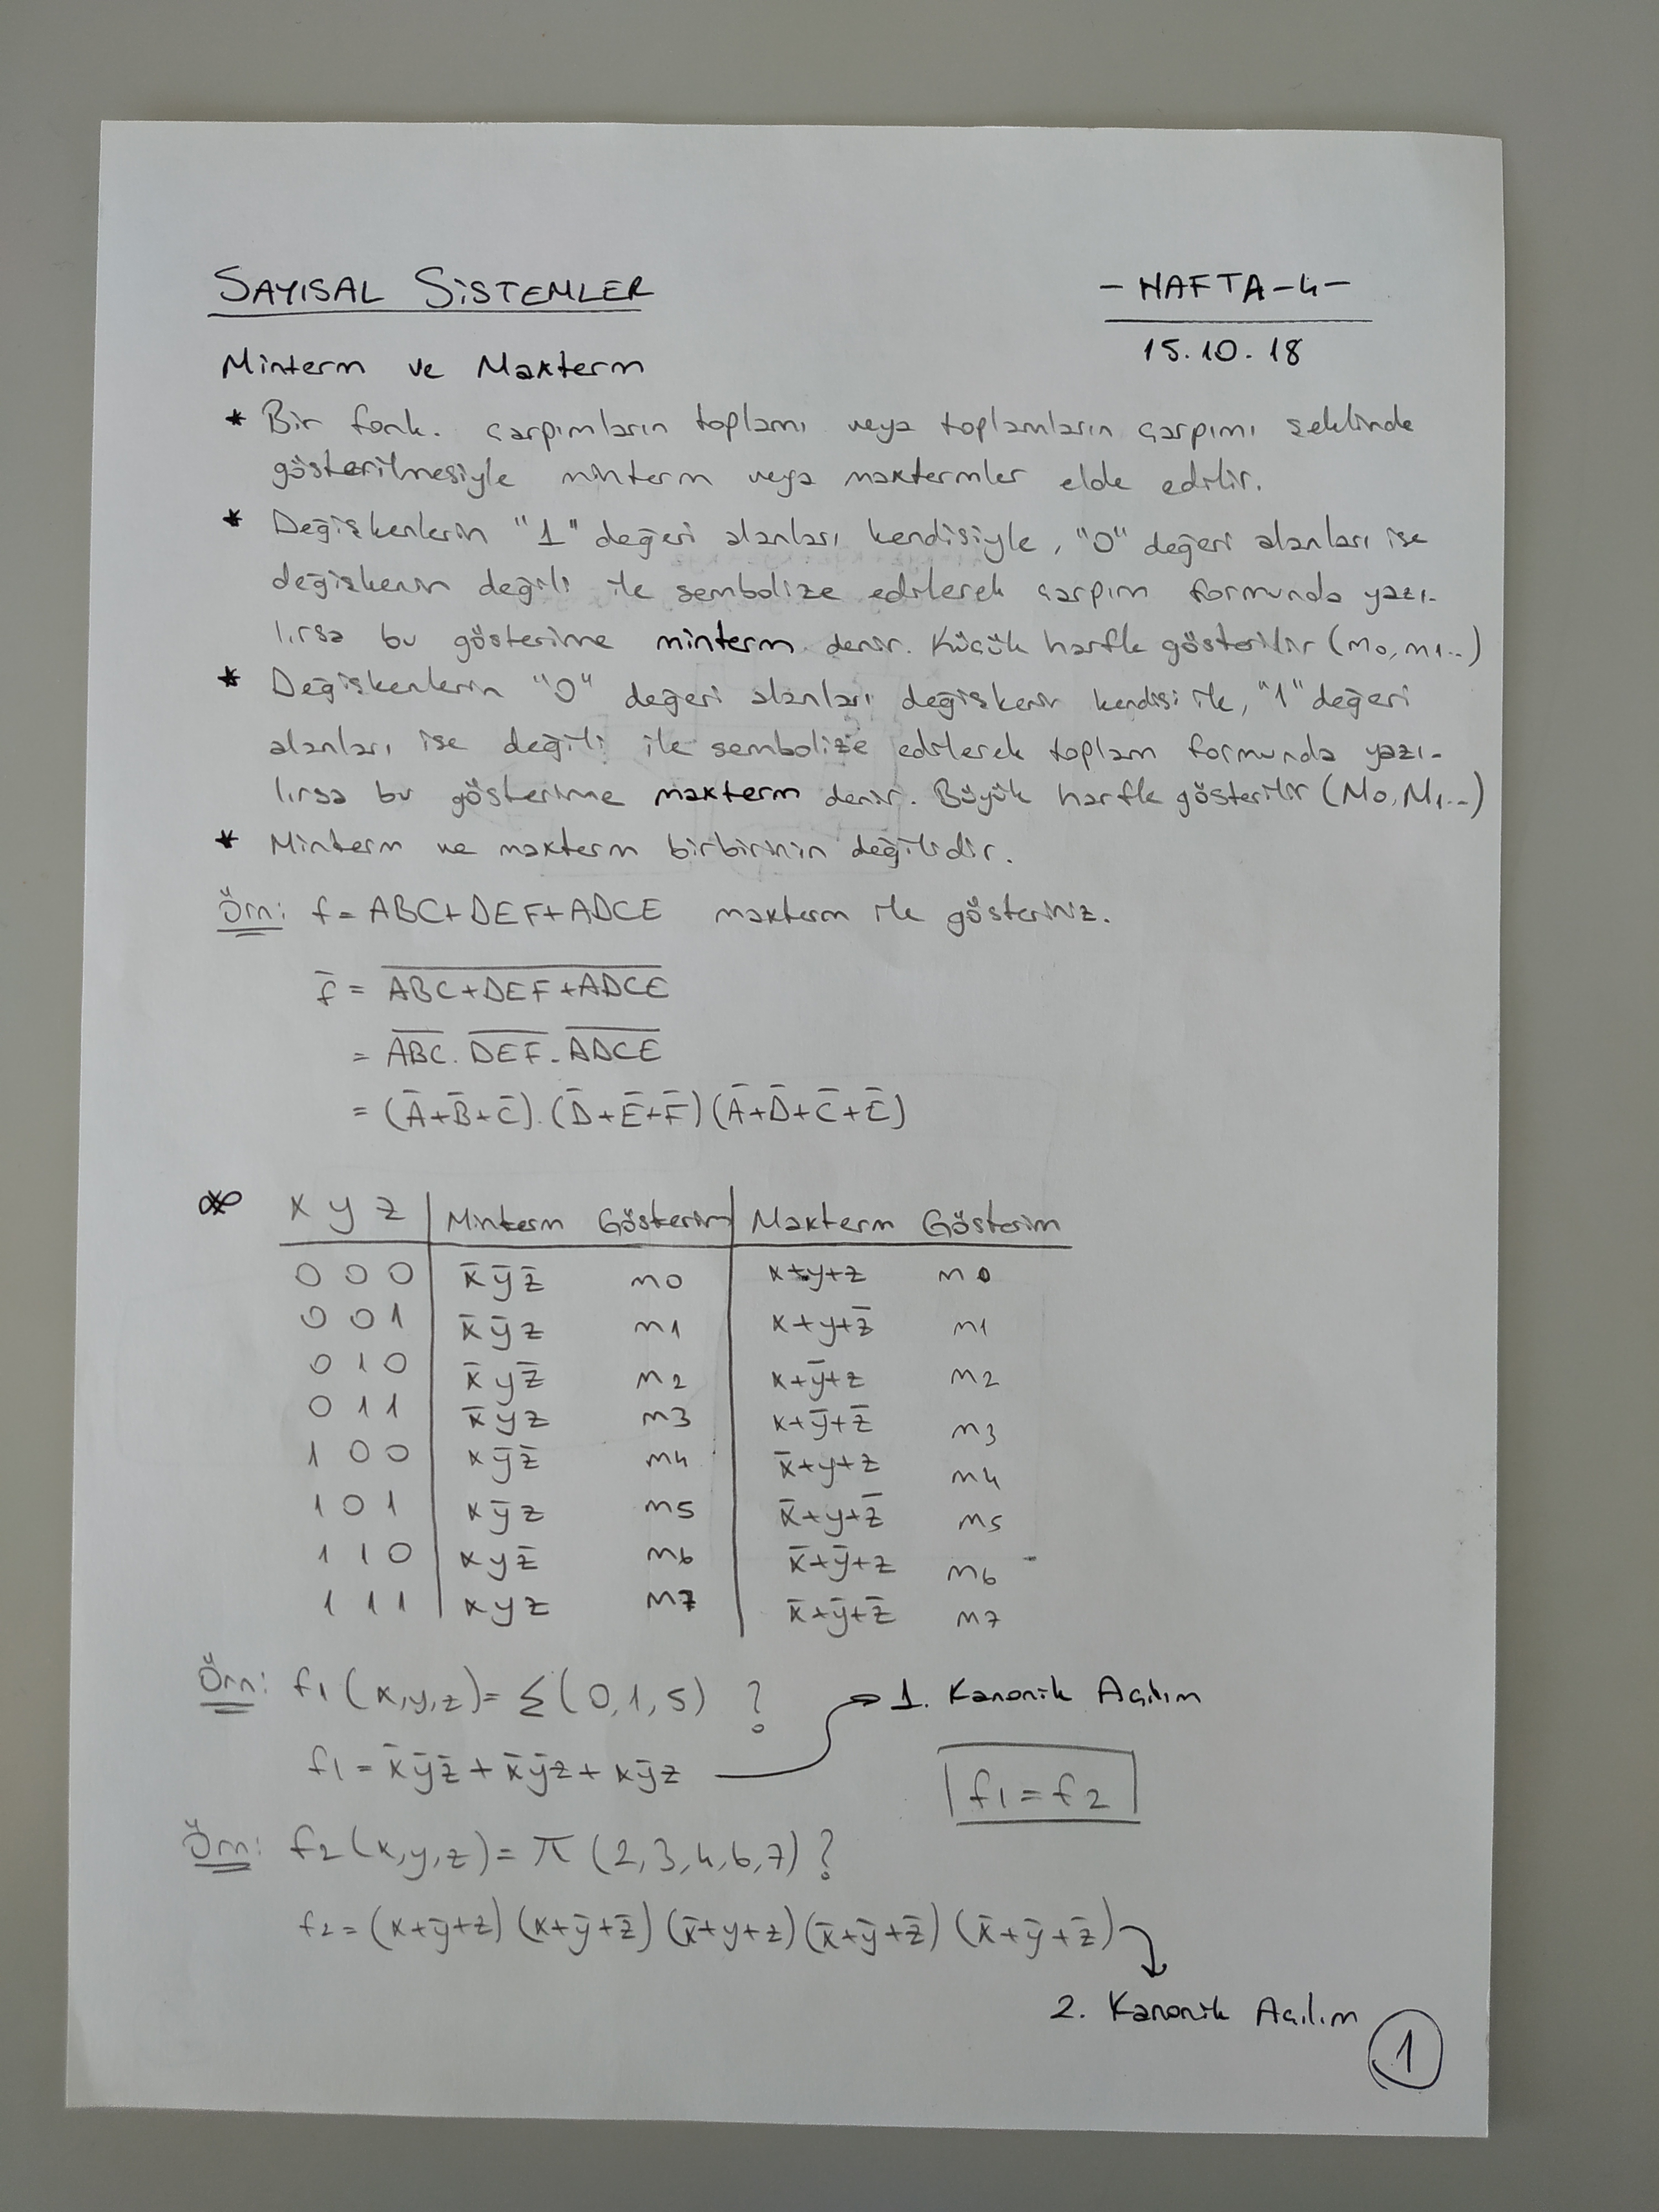 SAYISAL SİSTEMLER
-HAFTA-4-
15.10.18
Minterm ve Maxterm
* Bir fonk. çarpımların toplamı veya toplamların çarpımı şeklinde
gösterilmesiyle minterm veya maxtermler elde edilir.
* Değişkenlerin "1" değeri alanları kendisiyle, "0" değeri alanları ise
değişkenin değili ile sembolize edilerek çarpım formunda yazı-
lırsa bu gösterime minterm denir. Küçük harfle gösterilir (m0, m1..)
* Değişkenlerin "0" değeri alanları değişkenin kendisi ile, "1" değeri
alanları ise değili ile sembolize edilerek toplam formunda yazı-
lırsa bu gösterime maxterm denir. Büyük harfle gösterilir (M0, M1..)
* Minterm ve maxterm birbirinin değilidir.
Örn: f = ABC+DEF+ADCE maxterm ile gösteriniz.
f̅ = \overline{ABC+DEF+ADCE}
= \overline{ABC}.\overline{DEF}.\overline{ADCE}
= (A̅+B̅+C̅).(D̅+E̅+F̅)(A̅+D̅+C̅+E̅)
x y z | Minterm Gösterim | Maxterm Gösterim
0 0 0 | x̅y̅z̅ m0 | x+y+z M0
0 0 1 | x̅y̅z m1 | x+y+z̅ M1
0 1 0 | x̅yz̅ m2 | x+y̅+z M2
0 1 1 | x̅yz m3 | x+y̅+z̅ M3
1 0 0 | xy̅z̅ m4 | x̅+y+z M4
1 0 1 | xy̅z m5 | x̅+y+z̅ M5
1 1 0 | xyz̅ m6 | x̅+y̅+z M6
1 1 1 | xyz m7 | x̅+y̅+z̅ M7
Örn: f1 (x,y,z) = Σ(0,1,5) ?
f1 = x̅y̅z̅ + x̅y̅z + xy̅z
1. Kanonik Açılım
f1 = f2
Örn: f2 (x,y,z) = π (2,3,4,6,7) ?
f2 = (x+y̅+z)(x+y̅+z̅)(x̅+y+z)(x̅+y̅+z̅)(x̅+y̅+z̅)
2. Kanonik Açılım
1